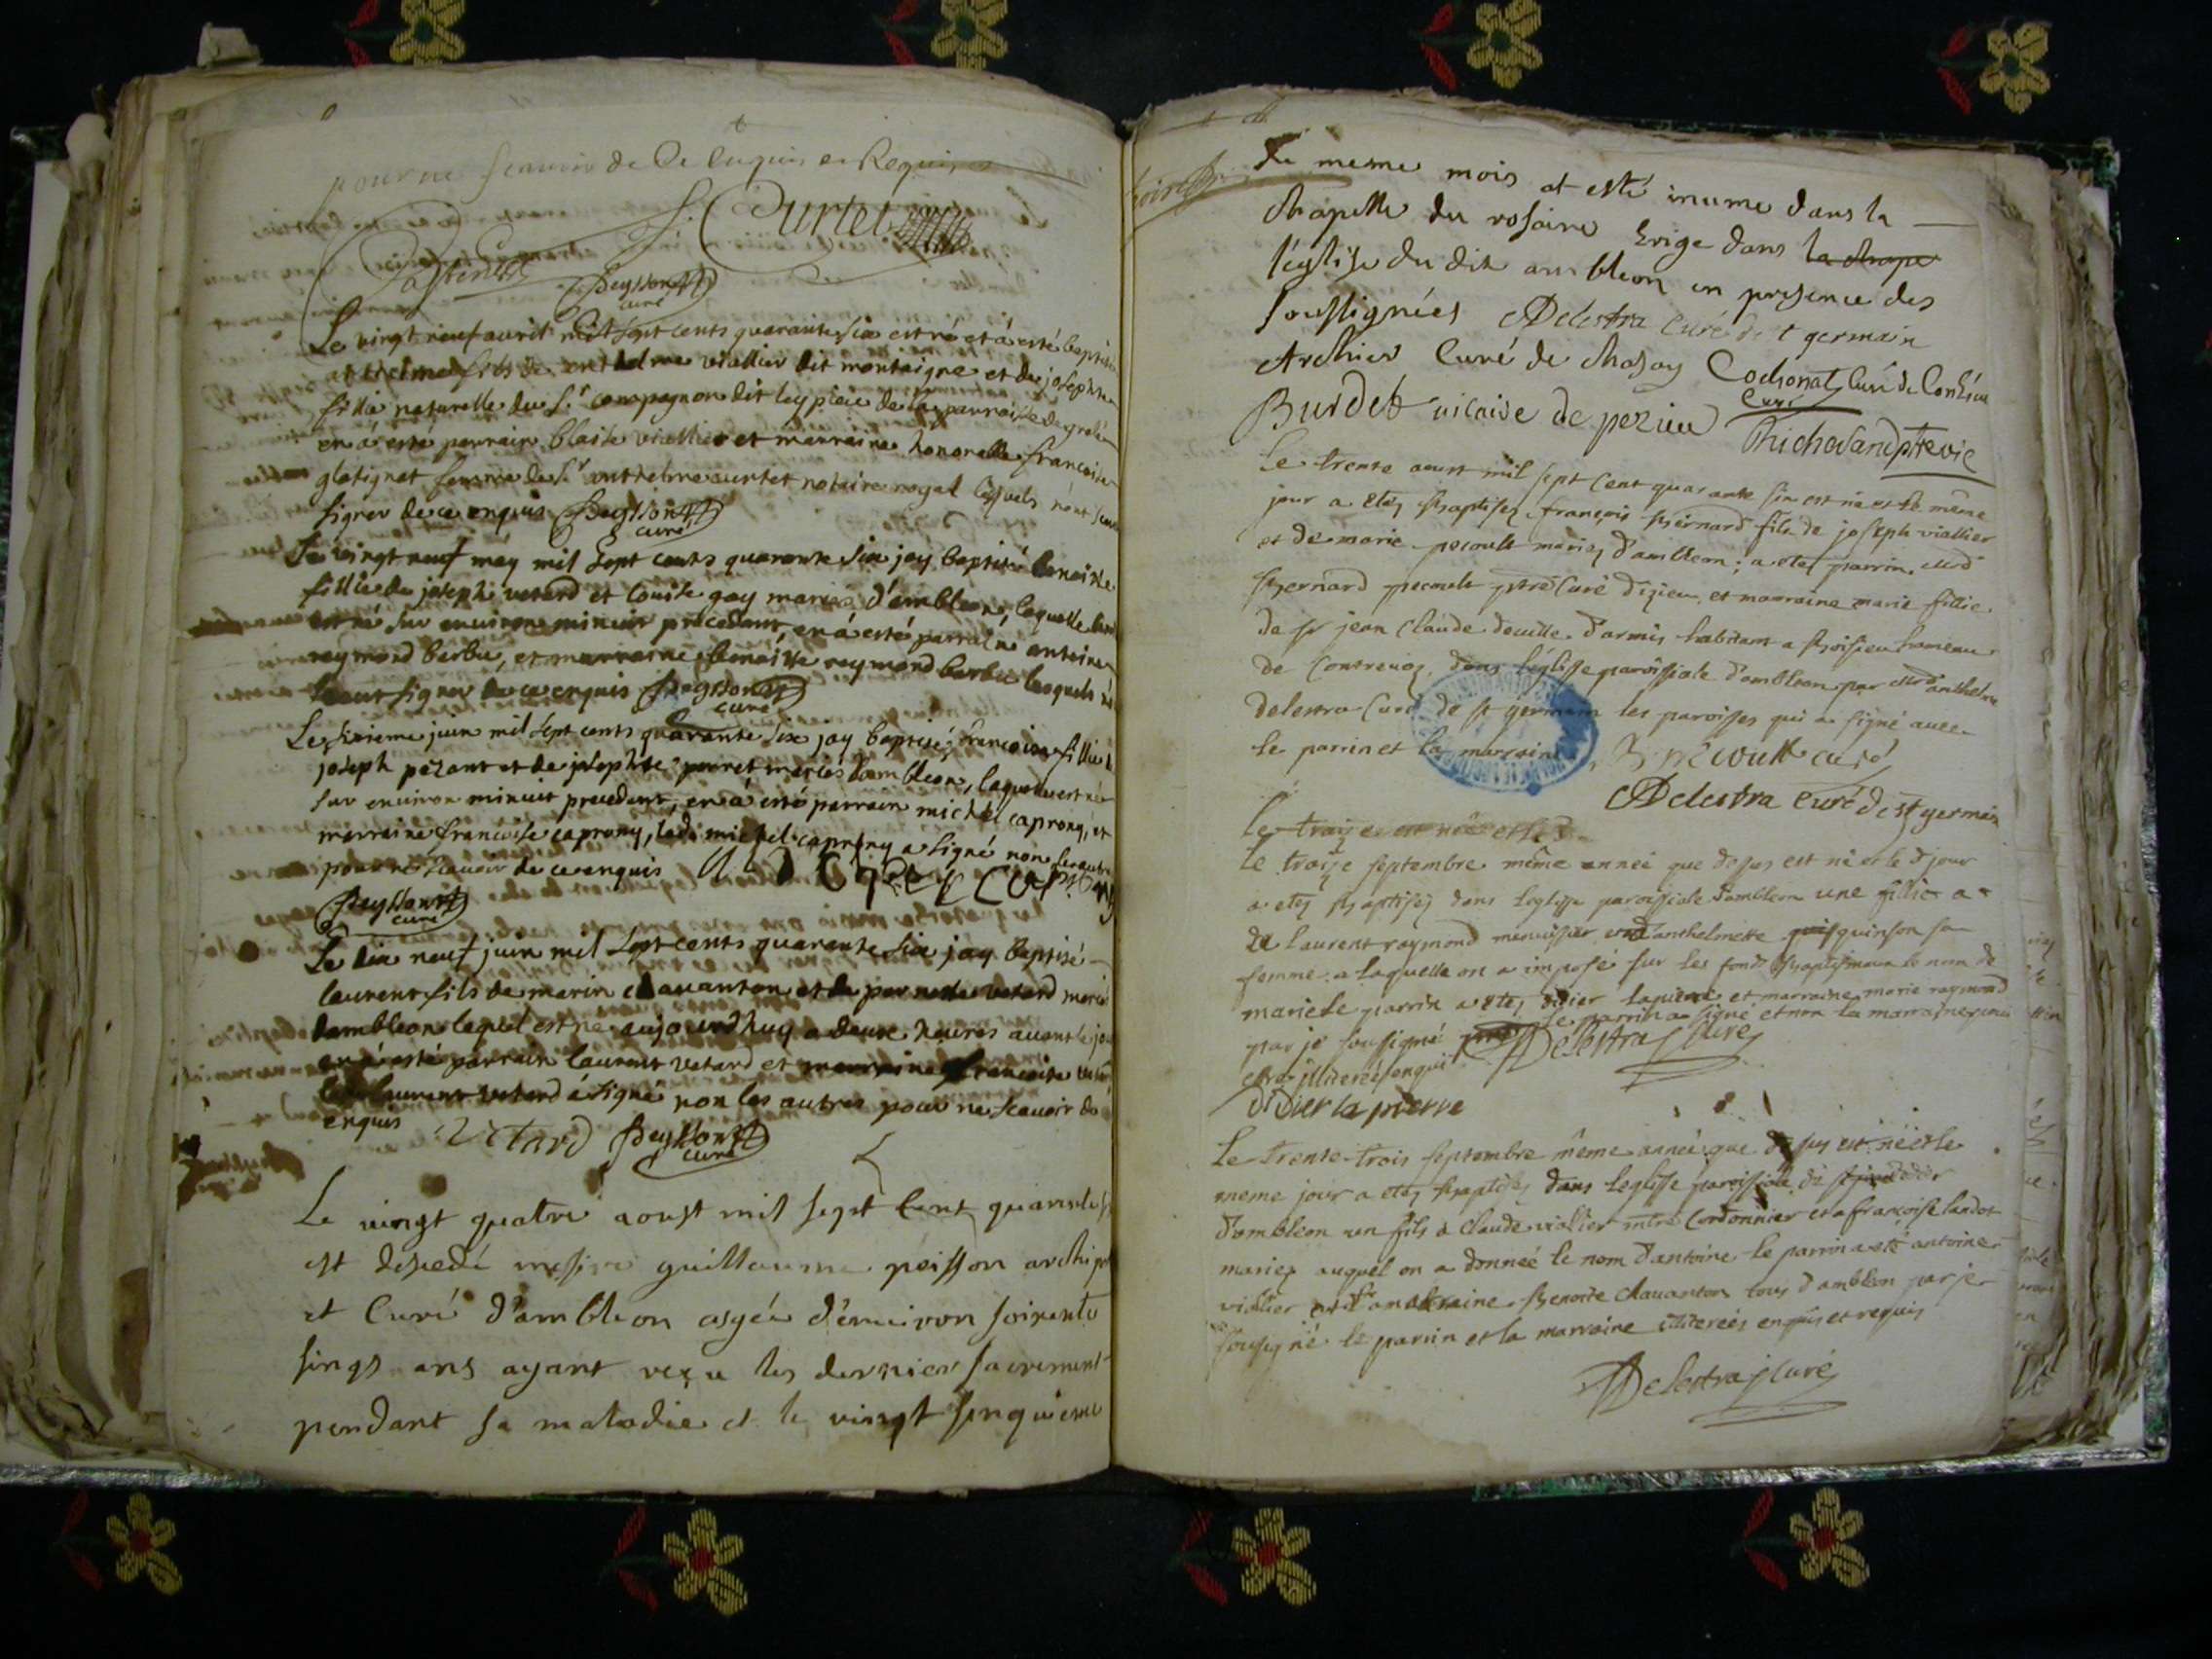 pour ne scavoir de ce enquis et Requis
J. Curtet
Peysson
curé
Le vingt neuf avril mil sept cents quarante six est né et a esté baptisé
anthelme fils de anthelme viallier dit montaigne et de josephte
fillie naturelle du Sr compagnon dit de la parroisse de
en a esté parrain blaise viallier et marraine honorable francoise
glatignat femme de Sr anthelme curtet notaire royal lesquels n'ont sceu
signer de ce enquis Peysson
curé
Le vingt neuf may mil sept cents quarante six jay baptisé benoiste
fillie de joseph vetard et louise gay mariés d'ambleon, laquelle
est né sur environ minuit precedant, en a esté parrain antoine
raymond barbu, et marraine benoiste raymond barbu lesquels n'ont
sceut signer de ce enquis Peysson
curé
Le sixieme juin mil sept cents quarante six jay baptisé francoise fillie de
joseph pezant et de josephte mariés dambleon, laquelle est né
sur environ minuit precedent, en a esté parrain michel caprony, et
marraine francoise caprony, ledi michel caprony a signé non les autres
pour ne scavoir de ce enquis
Peysson
curé
Le dix neuf juin mil sept cents quarante six jay baptisé
laurent fils de marin chavanton et de pernette vetard mariés
dambleon lequel est né aujourdhuy a deux heures avant le jour
en a esté parrain laurent vetard et marraine francoise
ledi laurent vetard a signé non les autres pour ne scavoir de
enquis Vetard Peysson
curé
Le vingt quatre aoust mil sept cent quarante six
est decedé messire guillaume peisson archipr
et Curé d'ambleon asgée d'environ soixante
sinqs ans ayant reçu les dernier sacrement
pendant sa maladie et le vingt sinquieme
du mesme mois at esté inumé dans la
chapelle du rosaire Erigé dans la chape
l'eglise du dit ambleon en presence des
soussignées Delestra Curé de st germain
Archier Curé de Chasay Cochonat Curé de
Curé
Burdet vicaire de pezieu
Le trente aoust mil sept Cent quarante six est né et le même
jour a etéz Baptisez françois Bernard fils de joseph viallier
et de marie pecoult mariez d'ambleon; a etez parrin mre
Bernard pecoult ptre Curé d'izieu, et marraine marie fillie
de sr jean Claude deville d'armis habitant a Boisieu hameau
de Contrevoz, dans l'eglisse paroissiale d'ambleon par mre anthelme
delestra Curé de st germain les paroisses qui a signé avec
le parrin et la marraine, B pecoult curé
Delestra Curé de st germain
Le traize est née et le d
Le traize septembre même année que desus est né et le d jour
a etez Baptisez dans leglisse paroissiale d'ambleon une fillie a
de laurent raymond menuisier et d'anthelmette quinson sa
femme a laquelle on a imposé sur les fonds Baptismaux le nom de
marie le parrin a etez didier lapierre et marraine marie raymond
par je sousigné le parrin a signé et non la marraine pour
etre illiterée enquis Delestra Curé
Didier la pierre
Le trente trois septembre même année que desus est né et le
meme jour a etez Baptisez dans leglisse paroissiale de
d'ambleon un fils a Claude viallier mtre Cordonnier et a françoise landot
mariez auquel on a donneé le nom d'antoine le parrin a eté antoine
viallier et la marraine Benoite Chavanton tous d'ambleon par je
sousigné le parrin et la marraine illitereés enquis et requis
Delestra Curé